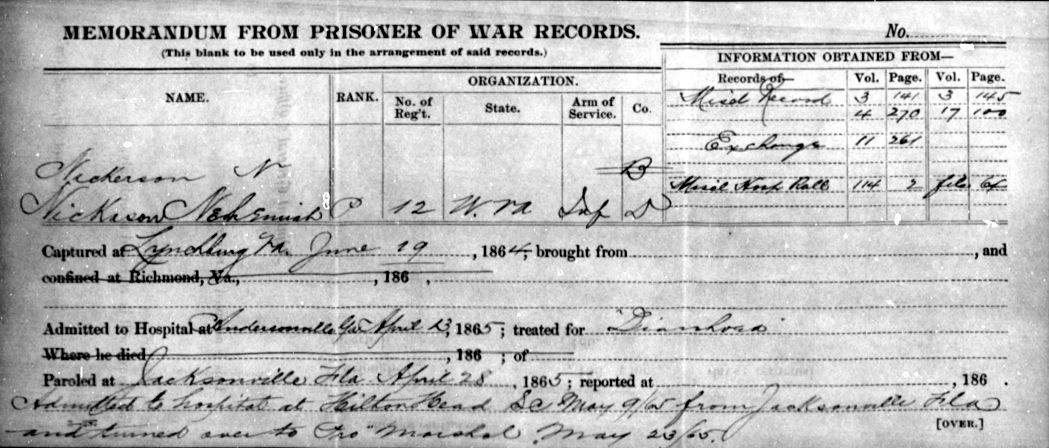 MEMORANDUM FROM PRISONER OF WAR RECORDS.
No.
(This blank to be used only in the arrangement of said records.)
INFORMATION OBTAINED FROM—
NAME.
RANK.
ORGANIZATION.
No. of Reg't.
State.
Arm of Service.
Co.
Records of— Vol. Page. Vol. Page.
Miscl Record 3 141 3 145
4 270 17 100
Exchange 11 261
Nickerson N B
Miscl Hosp Roll 114 2 file 64
Nickason Nehemiah P 12 W.Va Inf D
Captured at Lynchburg Va. June 19, 1864; brought from , and
confined at Richmond, Va., , 186 .
Admitted to Hospital at Andersonville Ga April 13, 1865; treated for "Diarrhoea"
Where he died , 186 ; of
Paroled at Jacksonville Fla. April 28, 1865; reported at , 186 .
Admitted to hospital at Hilton Head S.C. May 9/65 from Jacksonville Fla
and turned over to Pro Marshal May 23/65.
[OVER.]